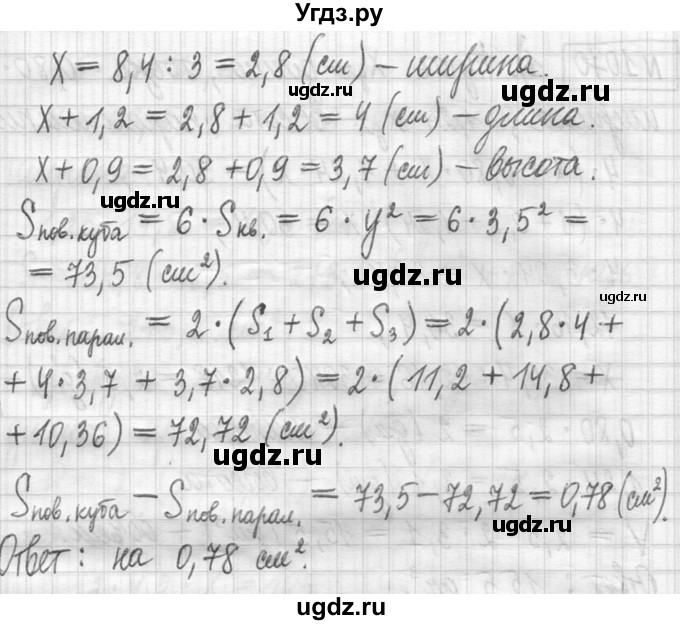 Угдз.ру
x = 8,4 : 3 = 2,8 (см) – ширина.
ugdz.ru
ugdz.ru
x + 1,2 = 2,8 + 1,2 = 4 (см) – длина.
x + 0,9 = 2,8 + 0,9 = 3,7 (см) – высота.
ugdz.ru
Sпов.куба = 6 · Sкв. = 6 · y² = 6 · 3,5² =
= 73,5 (см²).
ugdz.ru
ugdz.ru
Sпов.парал. = 2 · (S₁ + S₂ + S₃) = 2 · (2,8 · 4 +
+ 4 · 3,7 + 3,7 · 2,8) = 2 · (11,2 + 14,8 +
+ 10,36) = 72,72 (см²).
ugdz.ru
Sпов.куба – Sпов.парал. = 73,5 – 72,72 = 0,78 (см²).
Ответ: на 0,78 см².
ugdz.ru
ugdz.ru